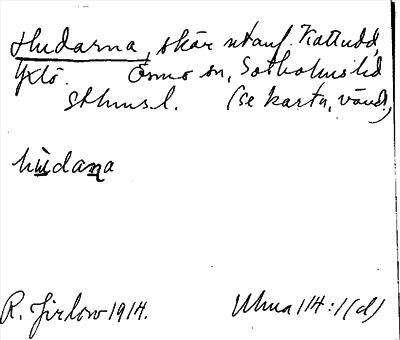 Hudarna, skär utanf. Kattudd,
Yxlö. Ösmo sn, Sotholms hd
Sthmsl. (se karta, vänd.)
hùdaṉa
R. Jirlow 1914. Ulma 114:1(d)